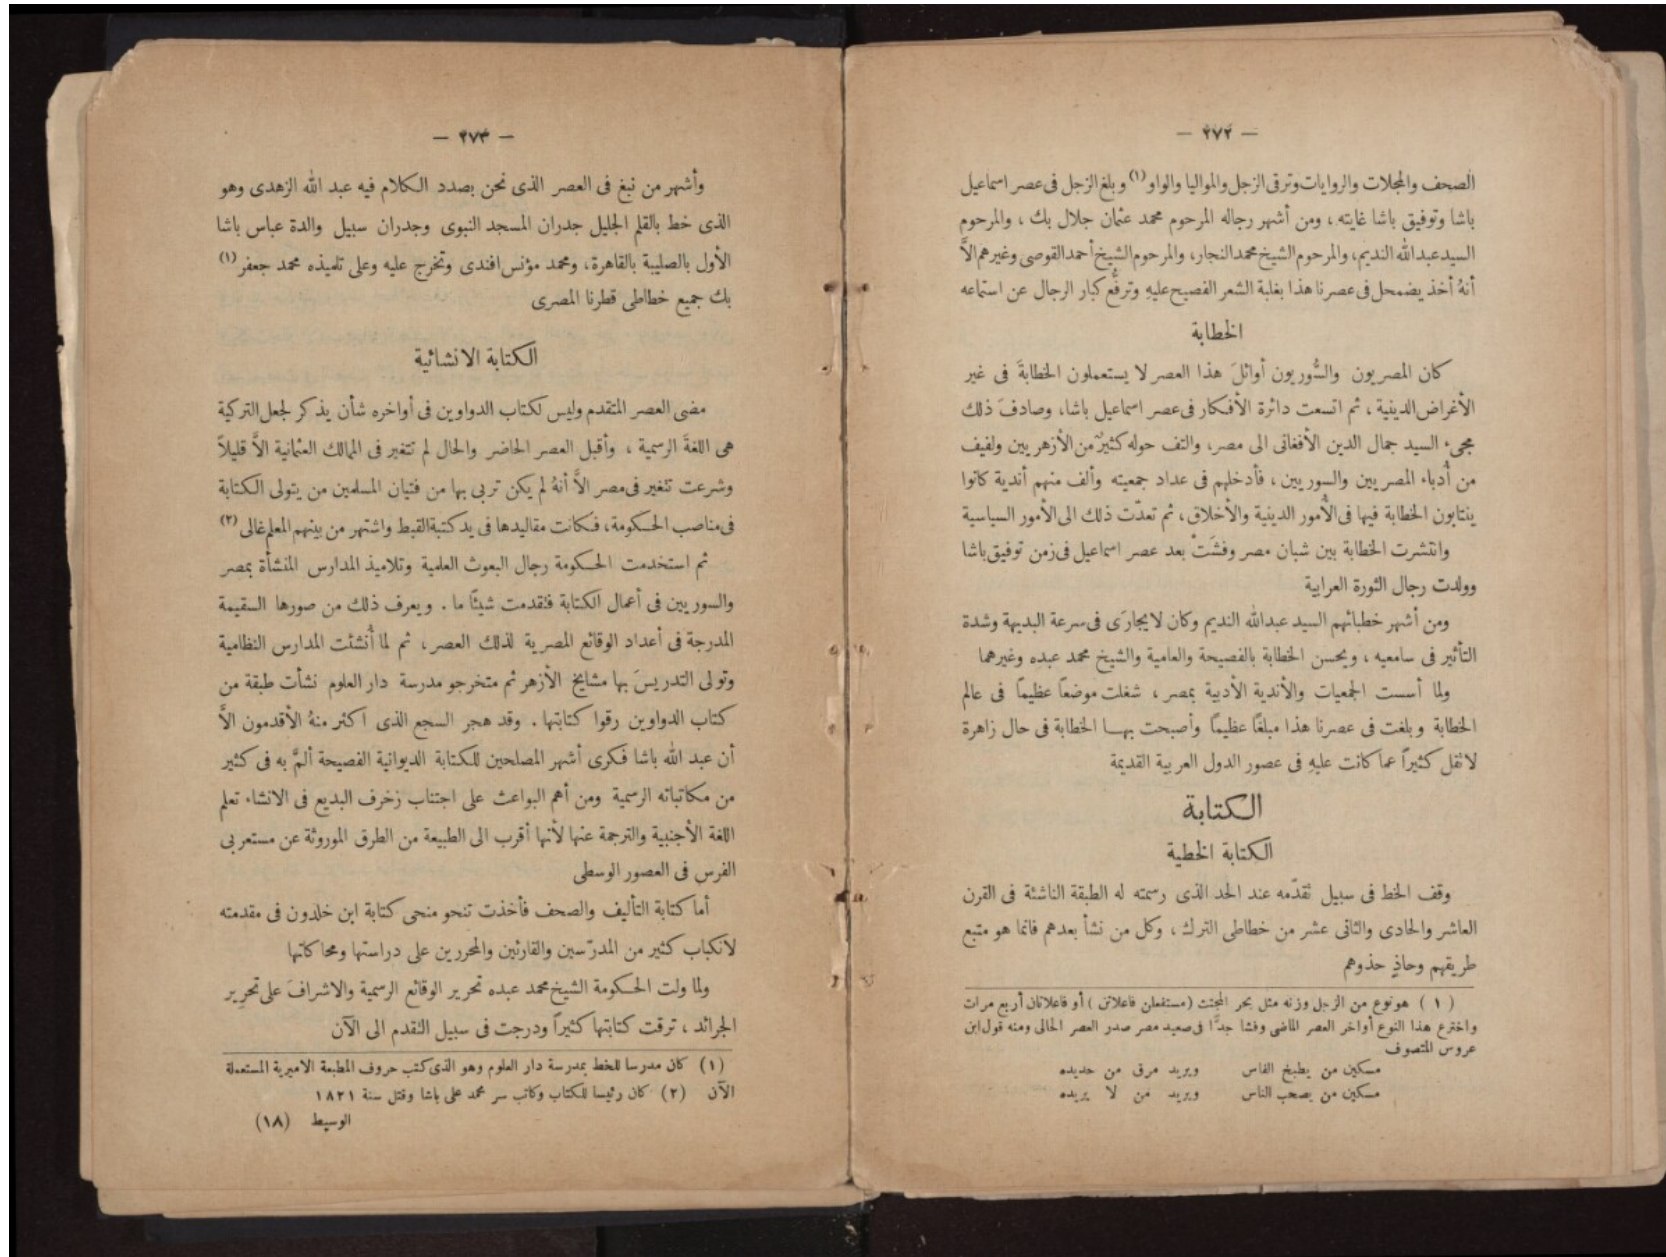 — ٢٧٢ —
الصحف والمجلات والروايات وترقى الزجل والمواليا والواو (١) وبلغ الزجل فى عصر اسماعيل
باشا وتوفيق باشا غايته ، ومن أشهر رجاله المرحوم محمد عثمان جلال بك ، والمرحوم
السيد عبد الله النديم، والمرحوم الشيخ محمد النجار، والمرحوم الشيخ أحمد القوصى وغيرهم الاَّ
أنهُ أخذ يضمحل فى عصرنا هذا بغلبة الشعر الفصيح عليهِ وترفُّع كبار الرجال عن استماعه
الخطابة
كان المصريون والسُّوريون أوائلَ هذا العصر لا يستعملون الخطابةَ فى غير
الأغراض الدينية ، ثم اتسعت دائرة الأفكار فى عصر اسماعيل باشا، وصادفَ ذلك
مجىء السيد جمال الدين الأفغانى الى مصر، والتف حوله كثيرٌ من الأزهريين ولفيف
من أُدباء المصريين والسوريين ، فأدخلهم فى عداد جمعيته وألف منهم أندية كانوا
ينتابون الخطابة فيها فى الأُمور الدينية والأخلاق ، ثم تعدّت ذلك الى الأمور السياسية
وانتشرت الخطابة بين شبان مصر وفشَتْ بعد عصر اسماعيل فى زمن توفيق باشا
وولدت رجال الثورة العرابية
ومن أشهر خطبائهم السيد عبد الله النديم وكان لا يجارَى فى سرعة البديهة وشدة
التأثير فى سامعيه ، ويحسن الخطابة بالفصيحة والعامية والشيخ محمد عبده وغيرهما
ولما أسست الجمعيات والأندية الأدبية بمصر ، شغلت موضعاً عظيماً فى عالم
الخطابة وبلغت فى عصرنا هذا مبلغاً عظيماً وأصبحت بهـا الخطابة فى حال زاهرة
لا تقل كثيراً عما كانت عليهِ فى عصور الدول العربية القديمة
الكتابة
الكتابة الخطية
وقف الخط فى سبيل تقدّمه عند الحد الذى رسمته له الطبقة الناشئة فى القرن
العاشر والحادى والثانى عشر من خطاطى الترك ، وكل من نشأ بعدهم فانما هو متبع
طريقهم وحاذٍ حذوهم
( ١ ) هو نوع من الزجل وزنه مثل بحر المجتث (مستفعلن فاعلاتن ) أو فاعلاتان أربع مرات
واخترع هذا النوع أواخر العصر الماضى وفشا جدًّا فى صعيد مصر صدر العصر الحالى ومنه قول ابن
عروس المتصوف
مسكين من يطبخ الفاس ويريد مرق من حديده
مسكين من يصحب الناس ويريد من لا يريده
— ٢٧٣ —
وأشهر من نبغ فى العصر الذى نحن بصدد الكلام فيه عبد الله الزهدى وهو
الذى خط بالقلم الجليل جدران المسجد النبوى وجدران سبيل والدة عباس باشا
الأول بالصليبة بالقاهرة، ومحمد مؤنس افندى وتخرج عليه وعلى تلميذه محمد جعفر (١)
بك جميع خطاطى قطرنا المصرى
الكتابة الانشائية
مضى العصر المتقدم وليس لكتاب الدواوين فى أواخره شأن يذكر لجعل التركية
هى اللغةَ الرسمية ، وأقبل العصر الحاضر والحال لم تتغير فى الممالك العثمانية الاَّ قليلاً
وشرعت تتغير فى مصر الاَّ أنهُ لم يكن تربى بها من فتيان المسلمين من يتولى الكتابة
فى مناصب الحكومة، فكانت مقاليدها فى يد كتبة القبط واشتهر من بينهم المعلم غالى (٢)
ثم استخدمت الحكومة رجال البعوث العلمية وتلاميذ المدارس المنشأة بمصر
والسوريين فى أعمال الكتابة فتقدمت شيئاً ما . ويعرف ذلك من صورها السقيمة
المدرجة فى أعداد الوقائع المصرية لذلك العصر ، ثم لما أُنشئت المدارس النظامية
وتولى التدريسَ بها مشايخ الأزهر ثم متخرجو مدرسة دار العلوم نشأت طبقة من
كتاب الدواوين رقوا كتابتها . وقد هجر السجع الذى اكثر منهُ الأقدمون الاَّ
أن عبد الله باشا فكرى أشهر المصلحين للكتابة الديوانية الفصيحة ألمَّ به فى كثير
من مكاتباته الرسمية ومن أهم البواعث على اجتناب زخرف البديع فى الانشاء تعلم
اللغة الأجنبية والترجمة عنها لأنها أقرب الى الطبيعة من الطرق الموروثة عن مستعربى
الفرس فى العصور الوسطى
أما كتابة التأليف والصحف فأخذت تنحو منحى كتابة ابن خلدون فى مقدمته
لانكباب كثير من المدرّسين والقارئين والمحررين على دراستها ومحاكاتها
ولما ولت الحكومة الشيخ محمد عبده تحرير الوقائع الرسمية والاشرافَ على تحرير
الجرائد ، ترقت كتابتها كثيراً ودرجت فى سبيل التقدم الى الآن
(١) كان مدرسا للخط بمدرسة دار العلوم وهو الذى كتب حروف المطبعة الاميرية المستعملة
الآن (٢) كان رئيسا للكتاب وكاتب سر محمد على باشا وقتل سنة ١٨٢١
الوسيط (١٨)